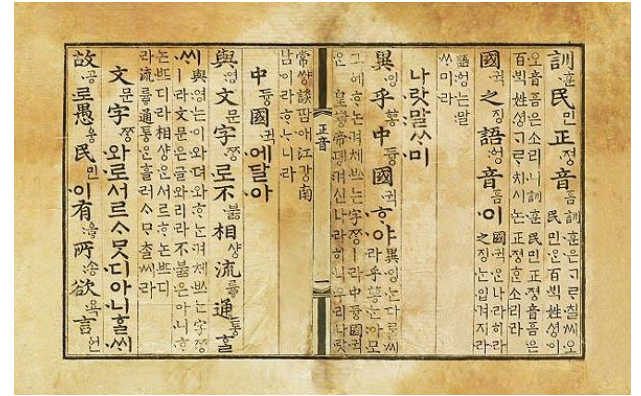 訓훈民민正졍音음 訓훈은 ᄀᆞᄅᆞ칠씨오 民민은 百ᄇᆡᆨ姓셩이
오 音음은 소리니 訓훈民민正졍音음은
百ᄇᆡᆨ姓셩 ᄀᆞᄅᆞ치시논 正졍ᄒᆞᆫ 소리라
國귁之징語ᅌᅥᆼ音음이 國귁ᄋᆞᆫ 나라히라 之징ᄂᆞᆫ 입겨지라
語ᅌᅥᆼ는 말
ᄊᆞ미라
나랏말ᄊᆞ미
異잉乎ᅘᅩᆼ中듕國귁ᄒᆞ야 異잉ᄂᆞᆫ 다ᄅᆞᆯ씨라 乎ᅘᅩᆼᄂᆞᆫ 아모
그ᅌᅦ ᄒᆞ논 겨체 ᄡᅳ는 字ᄍᆞᆼㅣ라 中듕國귁
ᄋᆞᆫ 皇ᅘᅪᆼ帝뎽 겨신 나라히니 우리나랏
正音
常썅談땀애 江강南
남이라 ᄒᆞᄂᆞ니라
中듕國귁에달아
與영文문字ᄍᆞᆼ로不붏相샹流륳通통ᄒᆞᆯ
ᄊᆡ 與영는 이와 뎌와 ᄒᆞ는 겨체 ᄡᅳ는 字ᄍᆞᆼ
ㅣ라 文문은 글와리라 不붏은 아니 ᄒᆞ
논 ᄠᅳ디라 相샹ᄋᆞᆫ 서르 ᄒᆞ논 ᄠᅳ디
라 流륳通통ᄋᆞᆫ 흘러 ᄉᆞᄆᆞᄎᆞᆯ씨라
文문字ᄍᆞᆼ와로서르ᄉᆞᄆᆞᆺ디아니ᄒᆞᆯᄊᆡ
故공로愚웅民민이有ᅌᅮᇢ所송欲욕言언